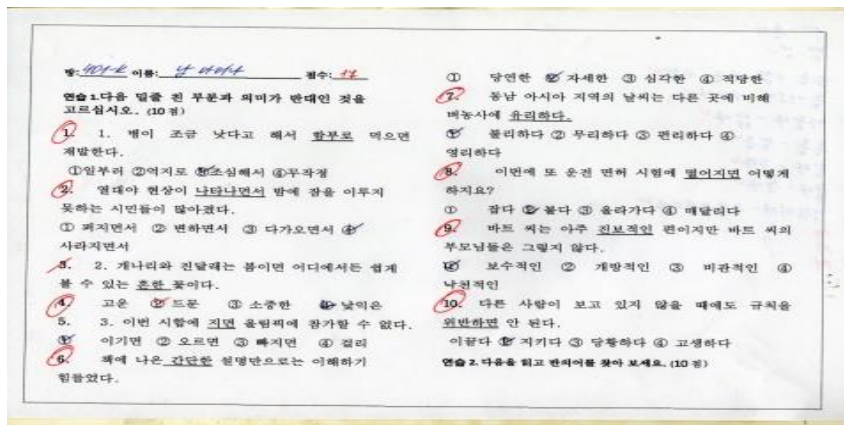 방: 401-K 이름: 남 점수: 17
연습 1.다음 밑줄 친 부분과 의미가 반대인 것을
고르십시오. (10 점)
1. 1. 병이 조금 낫다고 해서 함부로 먹으면
재발한다.
①일부러 ②억지로 ③조심해서 ④무작정
2. 열대야 현상이 나타나면서 밤에 잠을 이루지
못하는 시민들이 많아졌다.
① 퍼지면서 ② 변하면서 ③ 다가오면서 ④
사라지면서
3. 2. 개나리와 진달래는 봄이면 어디에서든 쉽게
볼 수 있는 흔한 꽃이다.
4. 고운 ② 드문 ③ 소중한 ④ 낯익은
5. 3. 이번 시합에 지면 올림픽에 참가할 수 없다.
① 이기면 ② 오르면 ③ 빠지면 ④ 걸리
6. 책에 나온 간단한 설명만으로는 이해하기
힘들었다.
① 당연한 ② 자세한 ③ 심각한 ④ 적당한
7. 동남 아시아 지역의 날씨는 다른 곳에 비해
벼농사에 유리하다.
① 불리하다 ② 무리하다 ③ 편리하다 ④
영리하다
8. 이번에 또 운전 면허 시험에 떨어지면 어떻게
하지요?
① 잡다 ② 붙다 ③ 올라가다 ④ 매달리다
9. 바트 씨는 아주 진보적인 편이지만 바트 씨의
부모님들은 그렇지 않다.
① 보수적인 ② 개방적인 ③ 비관적인 ④
낙천적인
10. 다른 사람이 보고 있지 않을 때에도 규칙을
위반하면 안 된다.
이끌다 ② 지키다 ③ 당황하다 ④ 고생하다
연습 2.다음을 읽고 반의어를 찾아 보세요. (10 점)